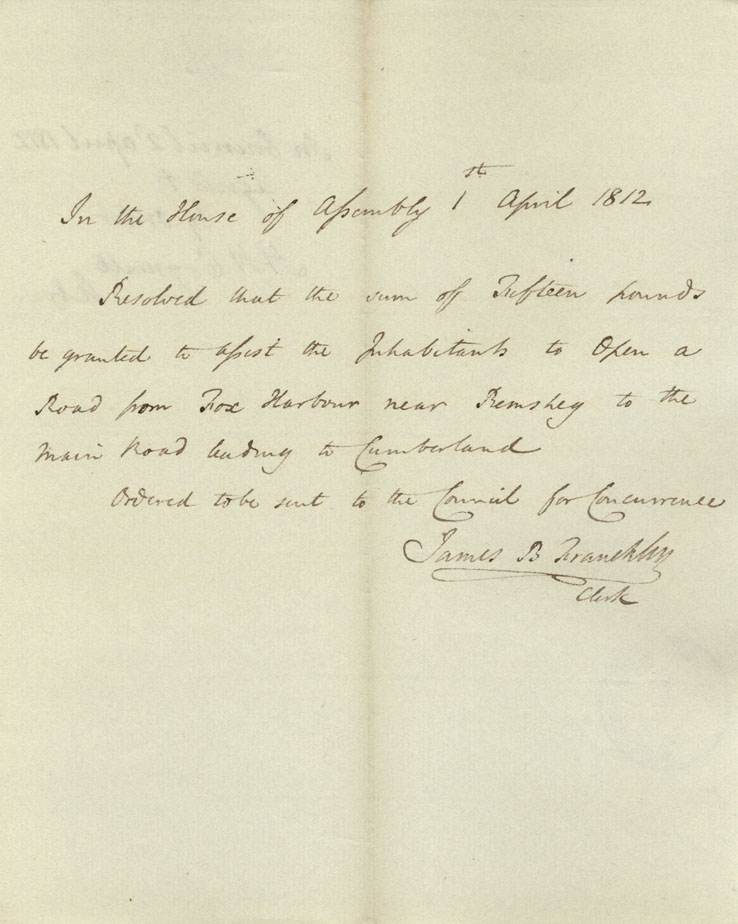 In the House of Assembly 1st April 1812
Resolved that the sum of Fifteen pounds
be granted to assist the Inhabitants to Open a
Road from Fox Harbour near Remsheg to the
Main Road leading to Cumberland
Ordered to be sent to the Council for Concurrence
James B Franckley
Clerk
In Council 2d April 1812